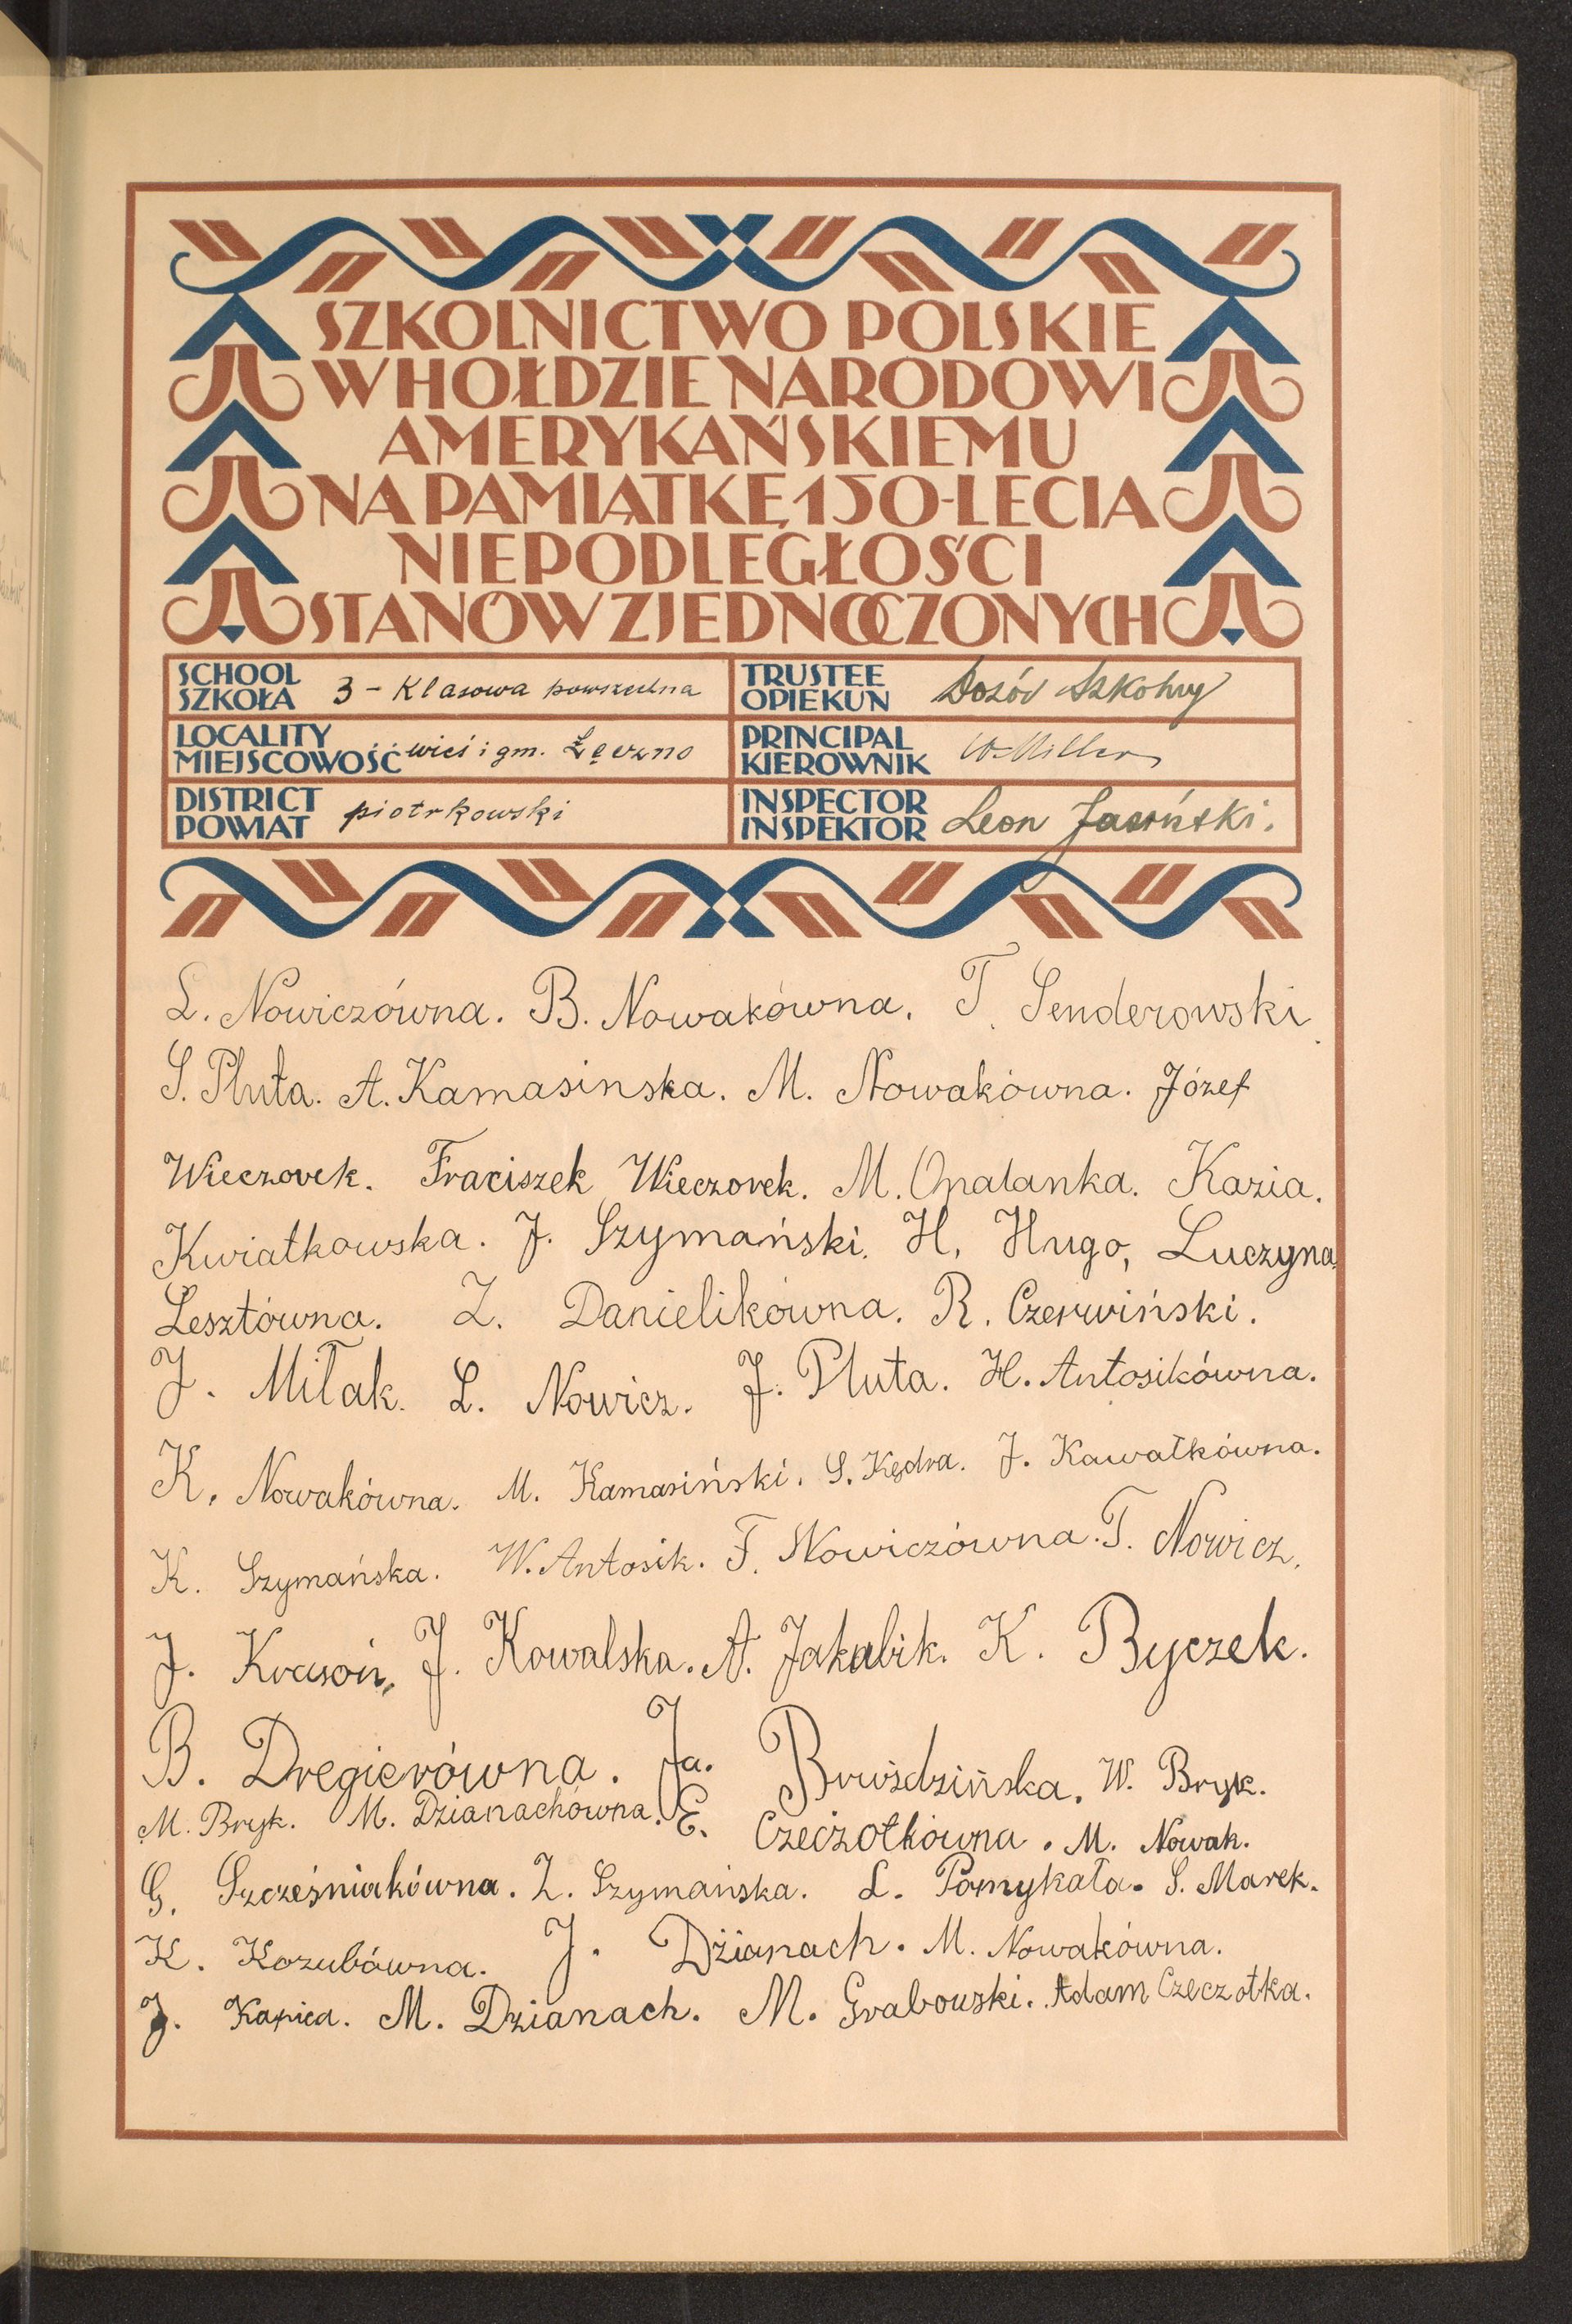 SZKOLNICTWO POLSKIE
W HOŁDZIE NARODOWI
AMERYKAŃSKIEMU
NA PAMIĄTKĘ 150-LECIA
NIEPODLEGŁOŚCI
STANÓW ZJEDNOCZONYCH
SCHOOL
SZKOŁA 3 - Klasowa powszechna
TRUSTEE
OPIEKUN Dozór Szkolny
LOCALITY
MIEJSCOWOŚĆ wieś i gm. Łęczno
PRINCIPAL
KIEROWNIK W. Miller
DISTRICT
POWIAT piotrkowski
INSPECTOR
INSPEKTOR Leon Jasiński.
L. Nowiczówna. B. Nowakówna. T. Senderowski
S. Pluta. A. Kamasinska. M. Nowakówna. Józef
Wieczorek. Fraciszek Wieczorek. M. Opalanka. Kazia.
Kwiatkowska. J. Szymański. H. Hugo, Luczyna
Lesztówna. Z. Danielikówna. R. Czerwiński.
J. Miłak. L. Nowicz. J. Pluta. H. Antosikówna.
K. Nowakówna. M. Kamasiński. S. Kędra. J. Kawałkówna.
K. Szymańska. W. Antosik. F. Nowiczówna. T. Nowicz.
J. Krasoń, J. Kowalska. A. Jakubik. K. Byczek.
B. Dregierówna. Ja. Bruździńska. W. Bryk.
M. Bryk. M. Dzianachówna. E. Czeczotkówna. M. Nowak.
G. Szcześniakówna. Z. Szymańska. L. Pomykała. S. Marek.
K. Kozubówna. J. Dzianach. M. Nowakówna.
J. Kapica. M. Dzianach. M. Grabowski. Adam Czeczotka.